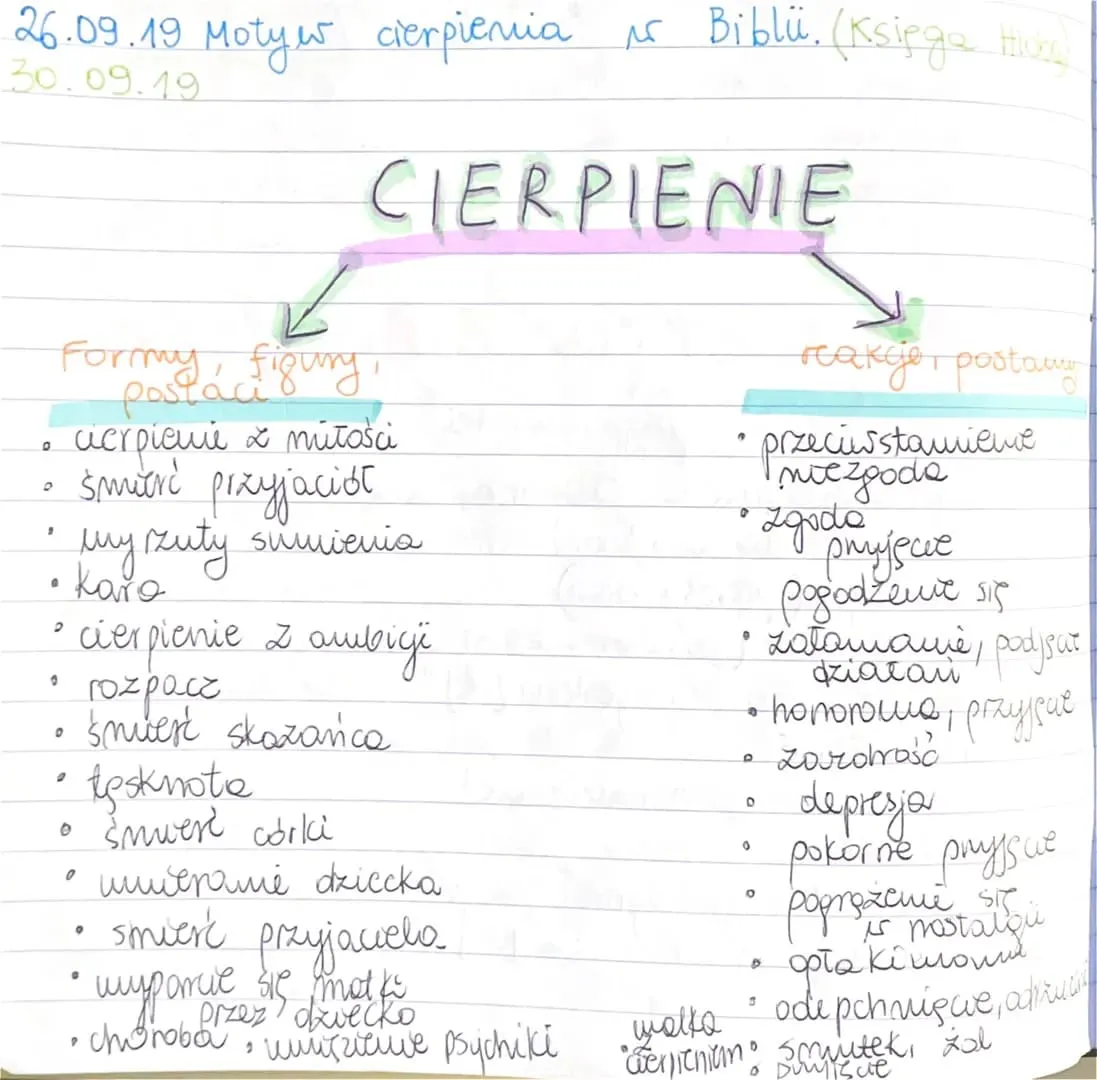 26.09.19 Motyw cierpienia w Biblii. (Księga Hioba)
30.09.19
CIERPIENIE
Formy, figury,
postaci
• cierpienie z miłości
• śmierć przyjaciół
• wyrzuty sumienia
• kara
• cierpienie z ambicji
• rozpacz
• śmierć skazańca
• tęsknota
• śmierć córki
• umieranie dziecka
• śmierć przyjaciela
• wyparcie się matki
przez dziecko
• choroba • zniszczenie psychiki
reakcje, postawy
• przeciwstawienie
niezgoda
• zgoda
przyjęcie
pogodzenie się
• załamanie, podjęcie
działań
• honorowa, przyjęcie
• zazdrość
• depresja
• pokorne przyjęcie
• pogrążenie się
w nostalgii
• opłakiwanie
• odepchnięcie, odrzucenie
• walka
z
cierpieniem
• smutek, żal
• przyjęcie